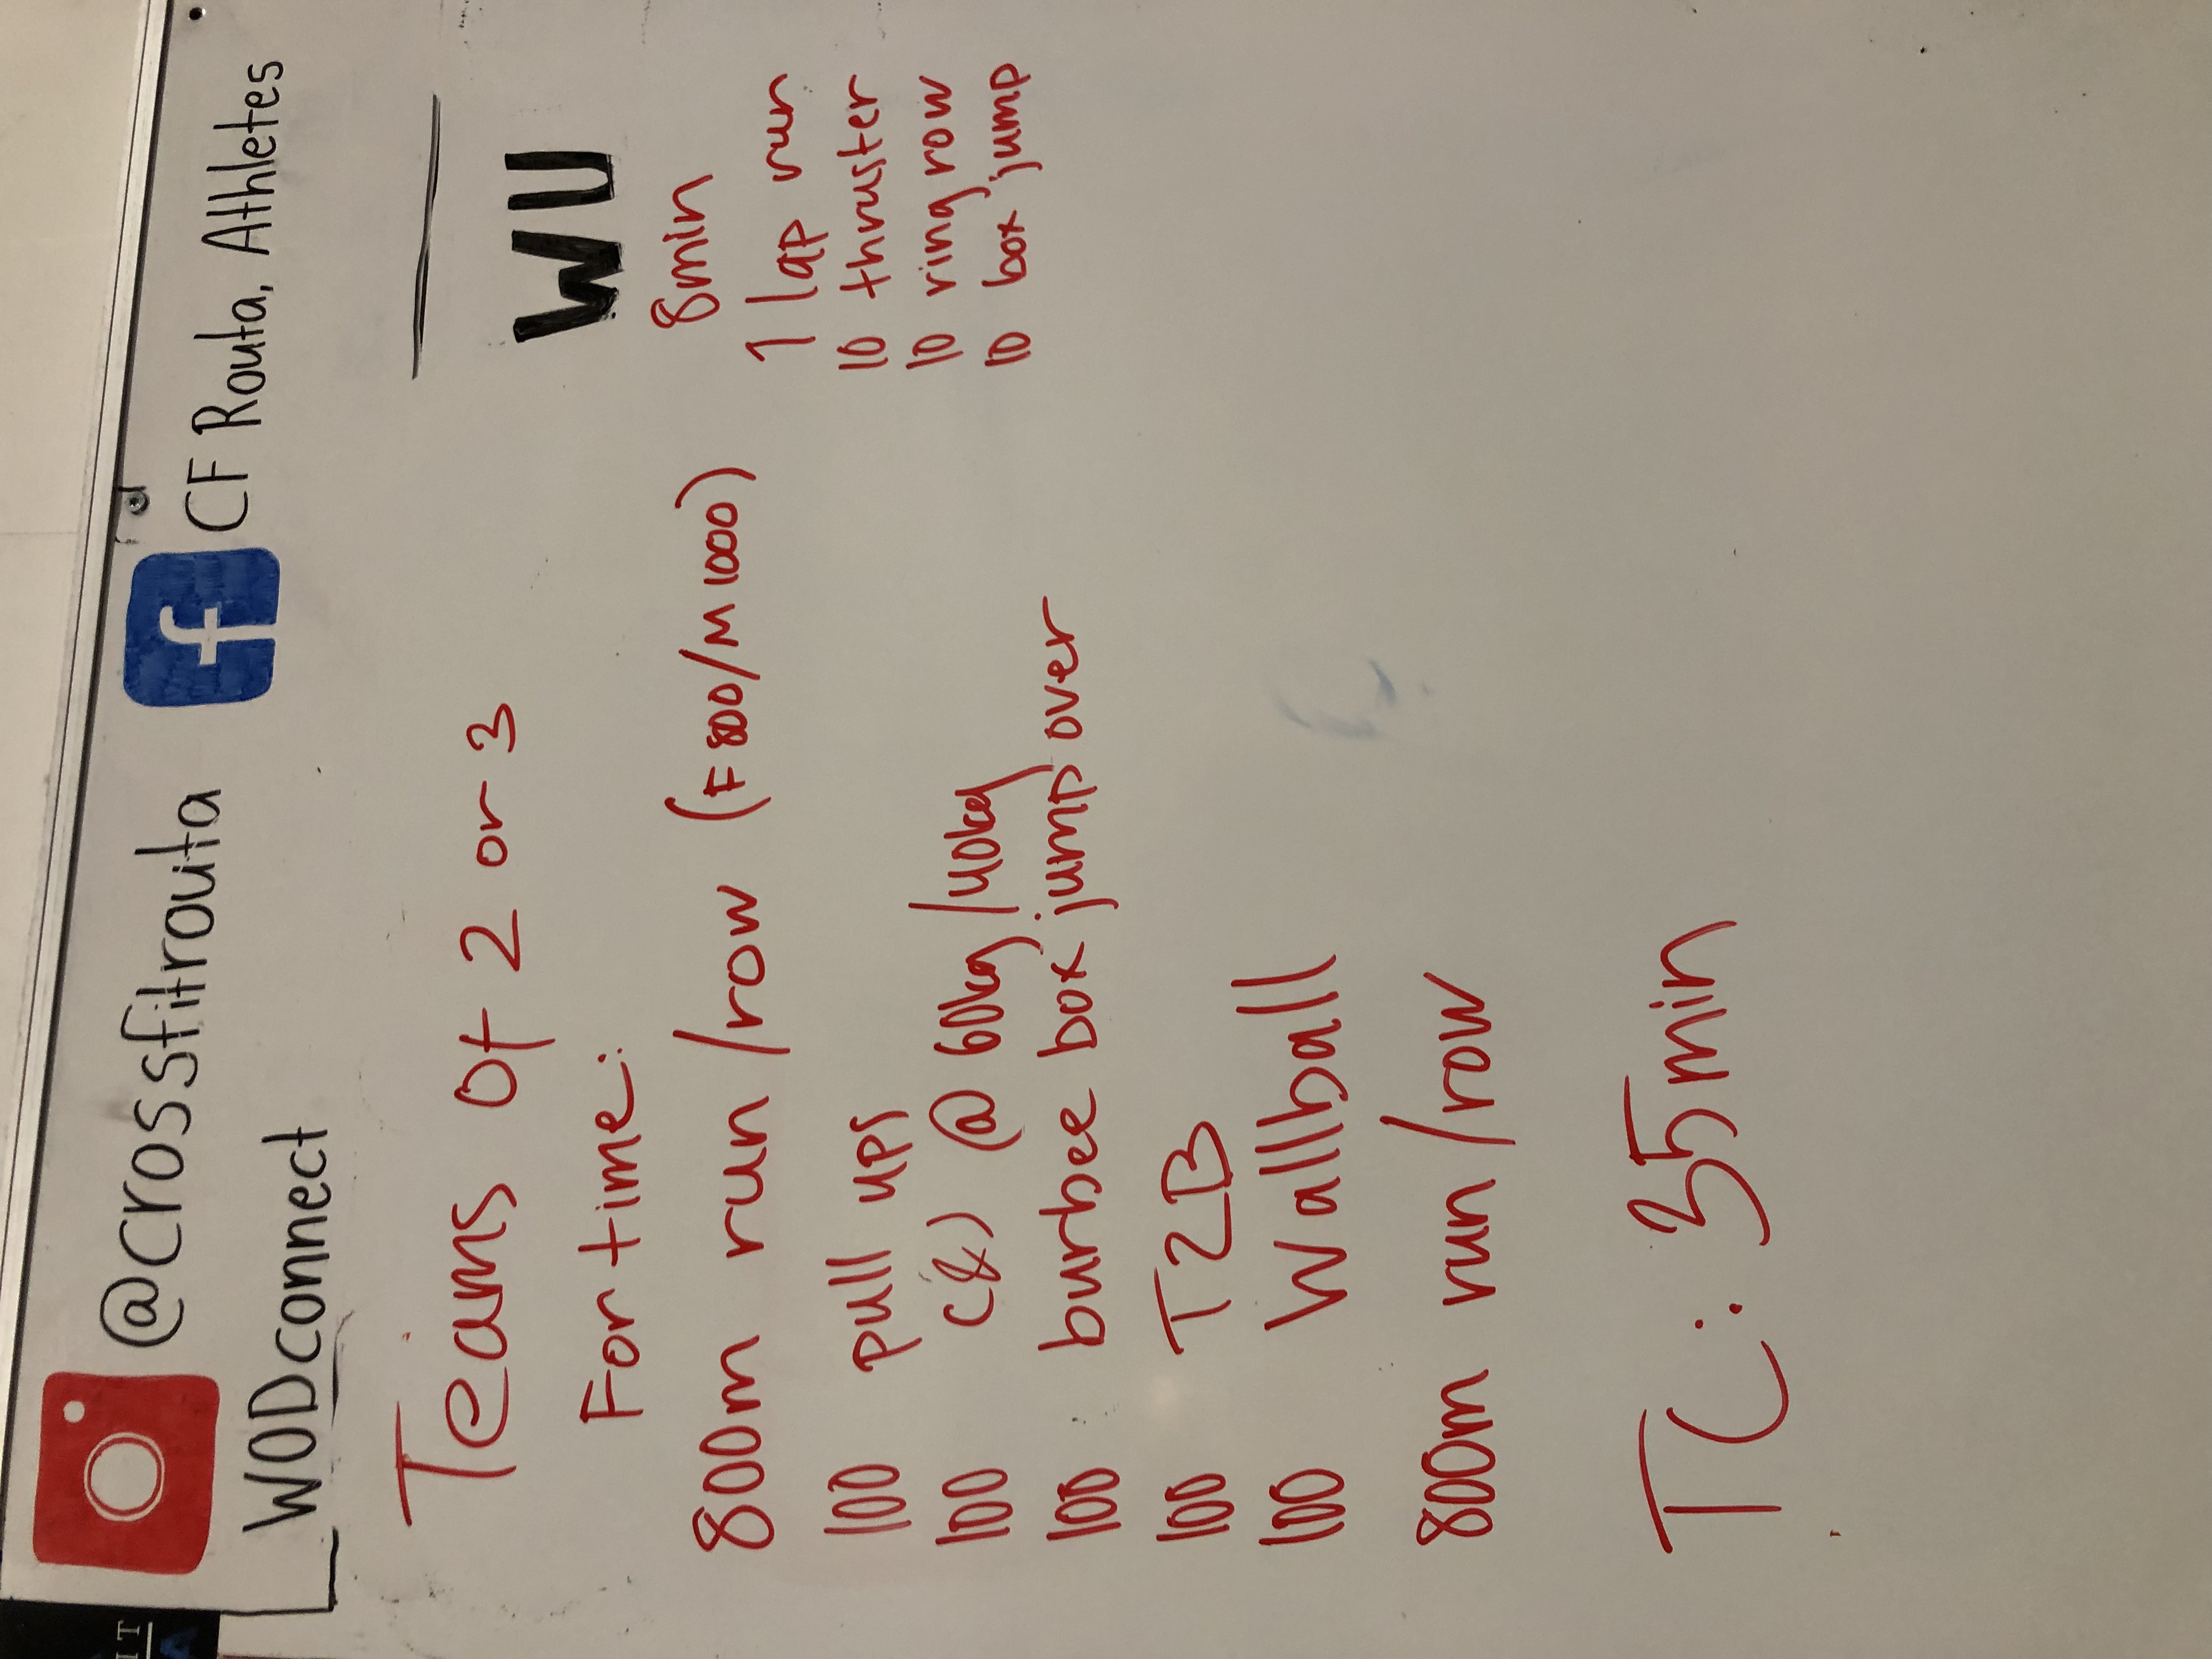 @crossfitrouta
CF Routa, Athletes
WODconnect
Teams of 2 or 3
For time:
800m run/row (F 800/M 1000)
100 pull ups
100 C&J @ 60kg/40kg
100 burpee box jump over
100 T2B
100 Wallball
800m run/row
TC: 35min
WU
8min
1 lap run
10 thruster
10 ring row
10 box jump